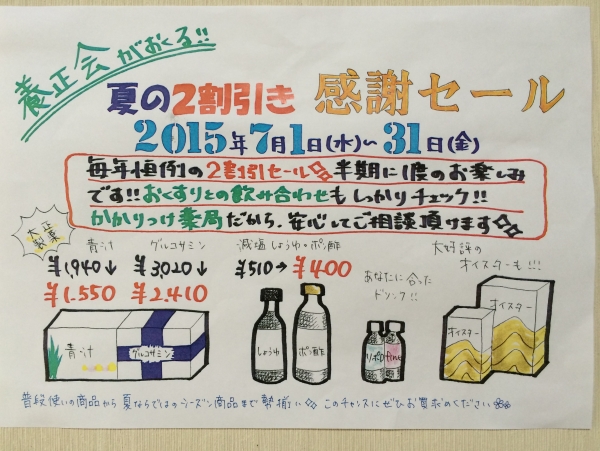 養正会がおくる!!
夏の2割引き 感謝セール
2015年7月1日(水)～31日(金)
毎年恒例の2割引セール 半期に1度のお楽しみ
です!!おくすりとの飲み合わせもしっかりチェック!!
かかりつけ薬局だから、安心してご相談頂けます
大正製薬
青汁
¥1,940↓
¥1.550
グルコサミン
¥3,020↓
¥2.410
減塩しょうゆ・ポン酢
¥510→¥400
あなたに合った
ドリンク!!
大好評の
オイスターも!!!
青汁
グルコサミン
しょうゆ
ポン酢
リポD
fine
オイスター
オイスター
普段使いの商品から夏ならではのシーズン商品まで勢揃い このチャンスにぜひお買求めください